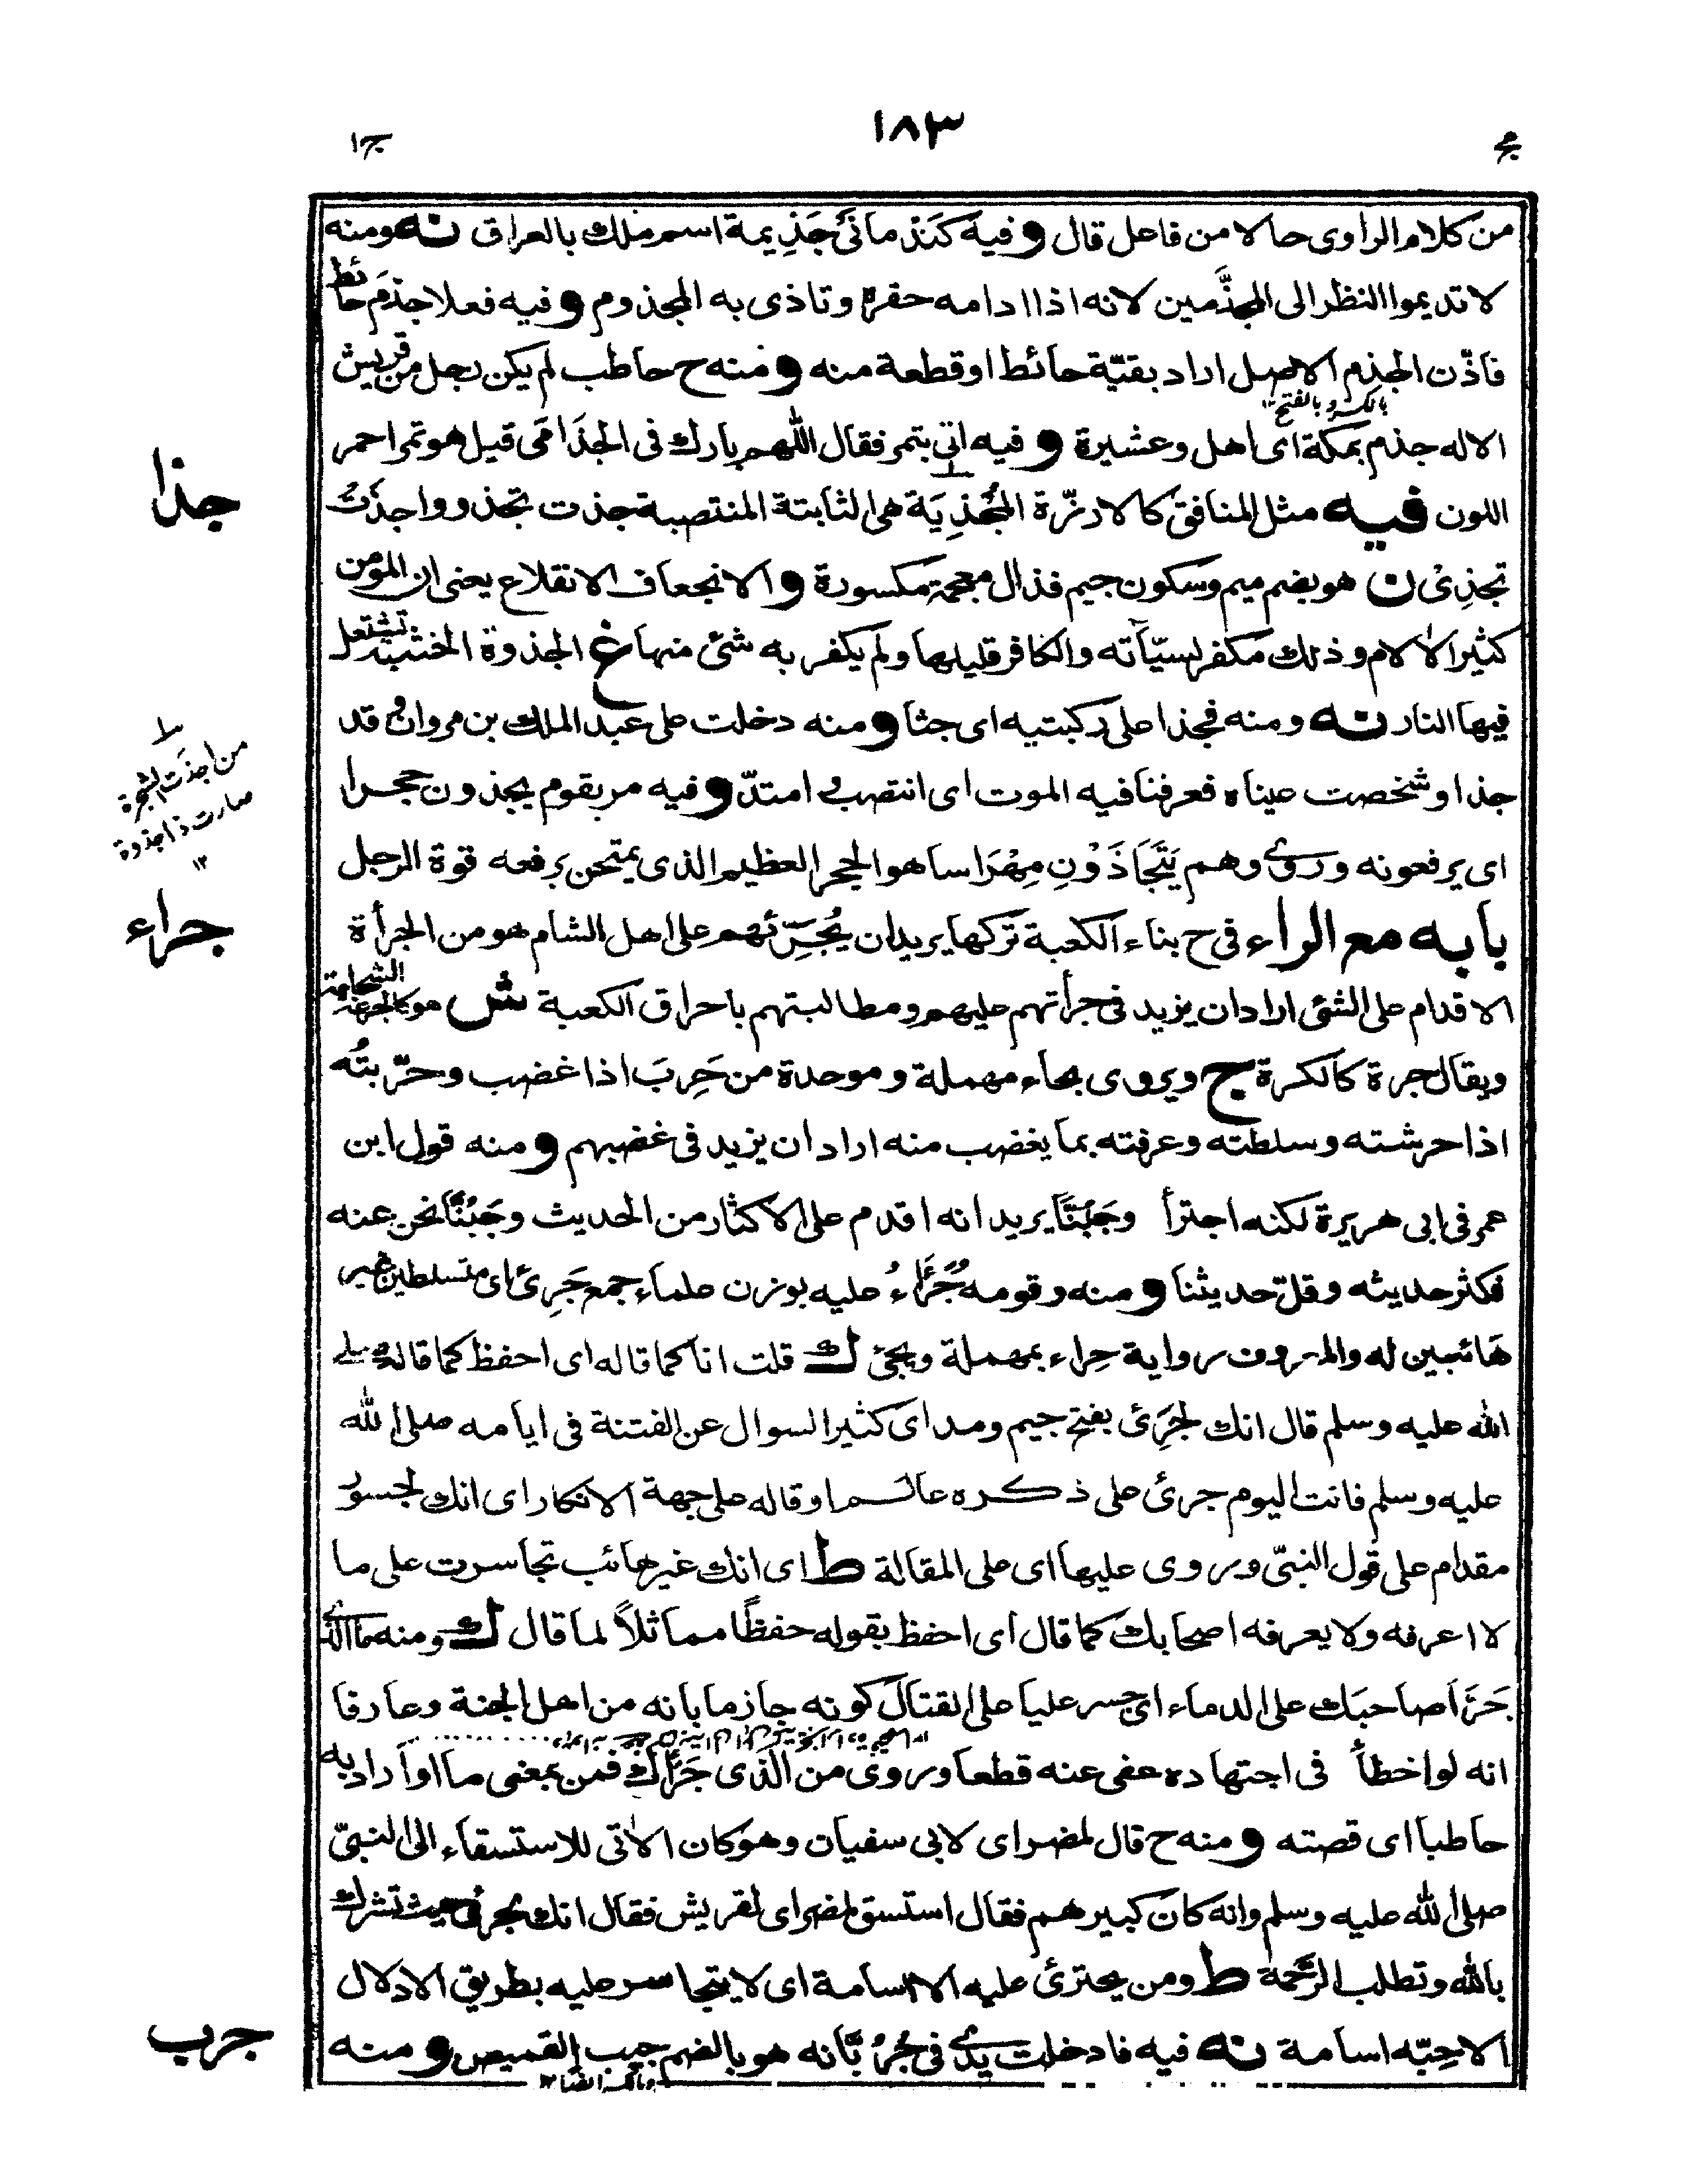 ج
١٨٣
ج١
من كلام الراوى حالا من فاعل قال وفيه كنذمانَىْ جَذِيمة اسم ملك بالعراق نه ومنه
لا تديموا النظر الى المجذَّمين لانه اذا ادامه حقره وتاذى به المجذوم وفيه فعلا جذم حائط
فاذّن الجذم الاصل اراد بقيّة حائط او قطعة منه ومنه ح حاطب لم يكن رجل من قريش
بالكسر وبالفتح ١٢
الا له جذم بمكة اى اهل وعشيرة وفيه اتى بتمر فقال اللّٰهم بارك فى الجذَامَى قيل هو تمر احمر
اللون فيه مثل المنافق كالارزّة المُجْذِيَة هى الثابتة المنتصبة جذت تجذو واجذَتْ
تجذِىْ ن هو بضم ميم وسكون جيم فذال معجمة مكسورة والانجعاف الانقلاع يعنى ان المؤمن
كثير الاٰلام وذلك مكفر لسيّاٰته والكافر قليلها ولم يكفر به شئ منها غ الجذوة الخشبة تشتعل
فيها النار نه ومنه فجذا على ركبتيه اى جثا ومنه دخلت على عبد الملك بن مروان وقد
جذا وشخصت عيناه فعرفنا فيه الموت اى انتصب وامتدّ وفيه مر بقوم يجذون حجرا
اى يرفعونه وروى وهم يَتَجَاذَوْنِ مِهْرَاسا هو الحجر العظيم الذى يمتحن برفعه قوة الرجل
بابه مع الراء فى ح بناء الكعبة تركها يريد ان يُجَرِّئهم على اهل الشام هو من الجرأة
الاقدام على الشئ اراد ان يزيد فى جرأتهم عليهم ومطالبتهم باحراق الكعبة ش هو كالجرعة الشجاعة
ويقال جرة كالكرة ج ويروى بحاء مهملة وموحدة من حَرِبَ اذا غضب وحرّبتُه
اذا حرشته وسلطته وعرفته بما يغضب منه اراد ان يزيد فى غضبهم ومنه قول ابن
عمر فى ابى هريرة لكنه اجترأ وجَبُنَّا يريد انه اقدم على الاكثار من الحديث وجَبُنَّا نحن عنه
فكثر حديثه وقلّ حديثنا ومنه وقومه جُرَءَاءُ عليه بوزن علماء جمع جَرِئ اى متسلطين غير
هائبين له والمعروف رواية حِراء بمهملة ويجئ ك قلت انا كما قاله اى احفظ كما قاله صلى
الله عليه وسلم قال انك لجَرِئ بفتح جيم ومد اى كثير السوال عن الفتنة فى ايامه صلى الله
عليه وسلم فانت اليوم جرئ على ذكره عالما او قاله على جهة الانكار اى انك لجسور
مقدام على قول النبىّ وروى عليها اى على المقالة ط اى انك غير هائب تجاسرت على ما
لا اعرفه ولا يعرفه اصحابك كما قال اى احفظ بقوله حفظًا مماثلاً لما قال ك ومنه ما الذى
جَرَّأ صاحبَك على الدماء اى جسر عليا على القتال كونه جازما بانه من اهل الجنة وعارفا
انه لو اخطأ فى اجتهاده عفى عنه قطعا وروى من الذى جَرَّأك فمن بمعنى ما او اراد به
حاطبا اى قصته ومنه ح قال لمضر اى لابى سفيان وهو كان الاٰتى للاستسقاء الى النبىّ
صلى الله عليه وسلم وانه كان كبيرهم فقال استسق لمضر اى لقريش فقال انك لجرئ حيث تشرك
بالله وتطلب الرحمة ط ومن يجترئ عليه الا اسامة اى لا يتجاسر عليه بطريق الادلال
الا حِبّه اسامة نه فيه فادخلت يدى فى جُرُبَّانه هو بالضم جيب القميص ومنه
جذا
من اجذت الشجرة
صارت ذا جذوة
١٢
جراء
جرب